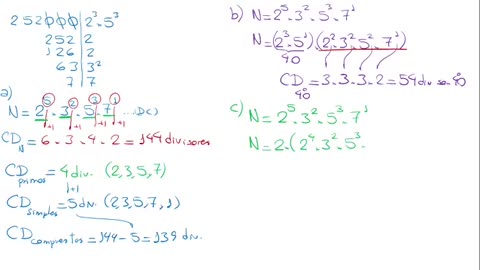 252000 | 2³·5³
252 | 2
126 | 2
63 | 3²
7 | 7
a)
N = 2⁵·3²·5³·7¹ (DC)
+1 +1 +1 +1
CD_N = 6 . 3 . 4 . 2 = 144 divisores
CD primos = 4 div. (2,3,5,7)
1+1
CD simples = 5 div. (2,3,5,7,1)
CD compuestos = 144 - 5 = 139 div.
b) N = 2⁵·3²·5³·7¹
N = (2³·5¹)·(2²·3²·5²·7¹)
40
CD 40 = 3.3.3.2 = 54 diviso 40
c) N = 2⁵·3²·5³·7¹
N = 2·(2⁴·3²·5³·